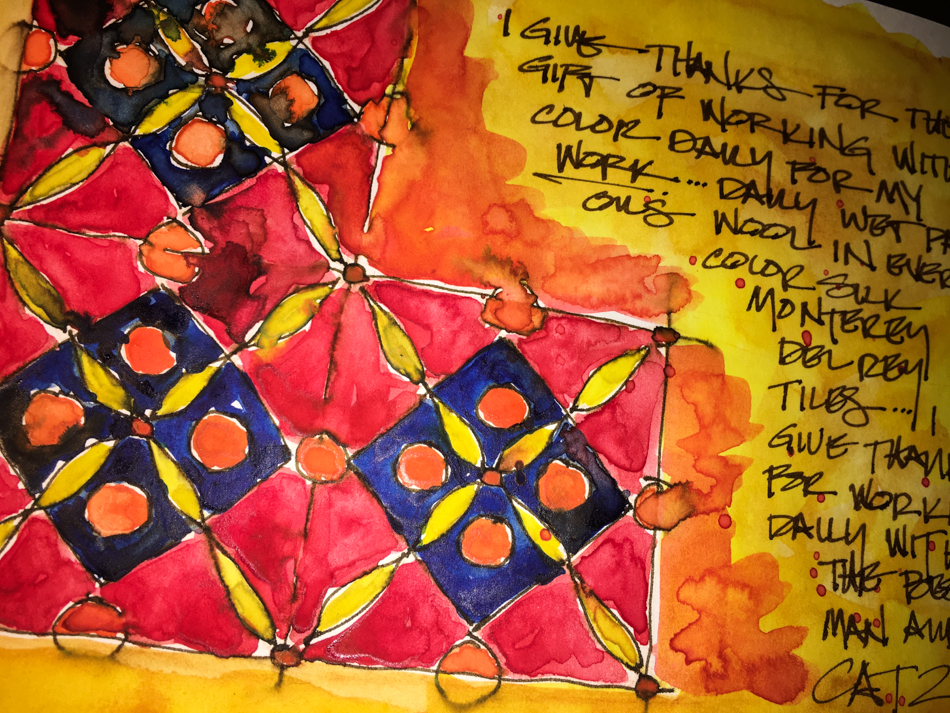 I GIVE THANKS FOR THE
GIFT OF WORKING WITH
COLOR DAILY FOR MY
WORK... DAILY WET P
WOOL IN EVER
COLOR SILK
MONTEREY
DEL REY
TILES... I
GIVE THAN
FOR WORK
DAILY WITH
THE BES
MAN AW
CAT2